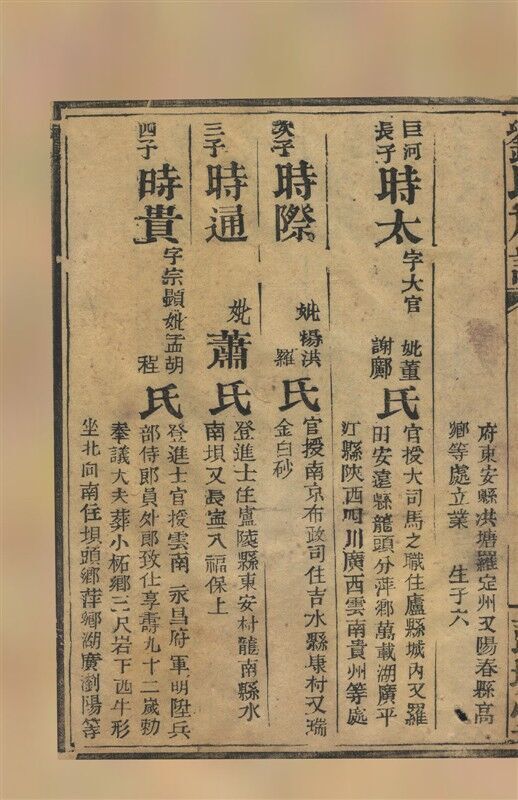 府東安縣洪塘羅定州又陽春縣高
鄉等處立業 生子六
巨河
長子
時太
字大官 妣董
謝鄺
氏
官授大司馬之職住盧縣城內又羅
田安遠縣龍頭分萍鄉萬載湖廣平
江縣陝西四川廣西雲南貴州等處
次子
時際
妣楊洪
羅
氏
官授南京布政司住吉水縣康村又瑞
金白砂
三子
時通
妣
蕭氏
登進士任盧陵縣東安村龍南縣水
南坝又長寧入福保上
四子
時貴
字宗顯妣孟胡
程
氏
登進士官授雲南永昌府軍明陞兵
部侍郎員外郎致仕享壽九十二歲勅
奉議大夫葬小柘鄉三尺岩下西牛形
坐北向南住坝頭鄉萍鄉湖廣瀏陽等